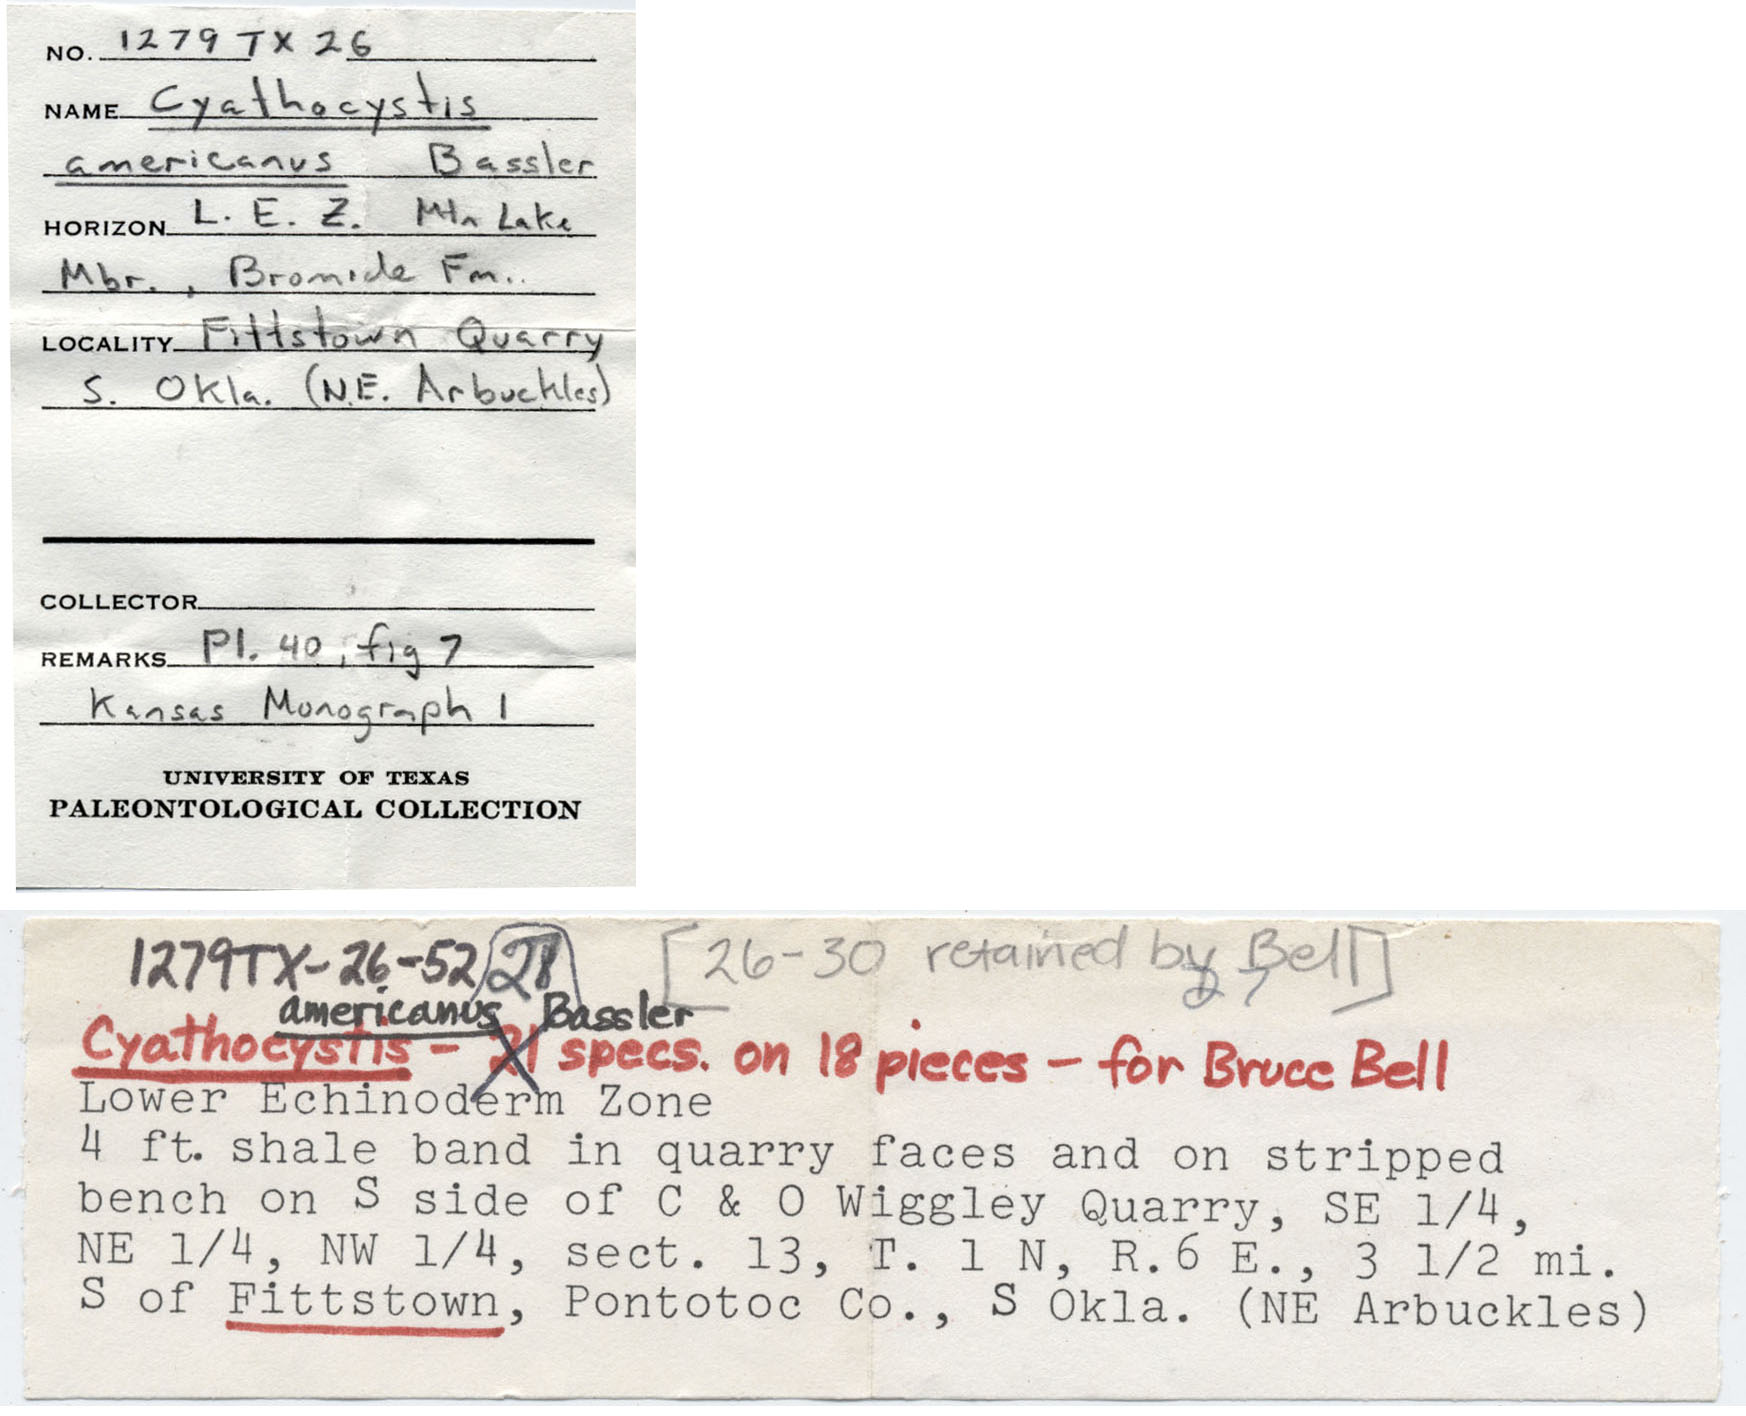 NO. 1279 TX 26
NAME Cyathocystis
americanus Bassler
HORIZON L. E. Z. Mtn Lake
Mbr., Bromide Fm..
LOCALITY Fittstown Quarry
S. Okla. (N.E. Arbuckles)
COLLECTOR
REMARKS Pl. 40, fig 7
Kansas Monograph 1
UNIVERSITY OF TEXAS
PALEONTOLOGICAL COLLECTION
1279TX-26-52 28 [26-30 retained by Bell]
americanus Bassler
Cyathocystis - 21 specs. on 18 pieces - for Bruce Bell
Lower Echinoderm Zone
4 ft. shale band in quarry faces and on stripped
bench on S side of C & O Wiggley Quarry, SE 1/4,
NE 1/4, NW 1/4, sect. 13, T. 1 N, R.6 E., 3 1/2 mi.
S of Fittstown, Pontotoc Co., S Okla. (NE Arbuckles)